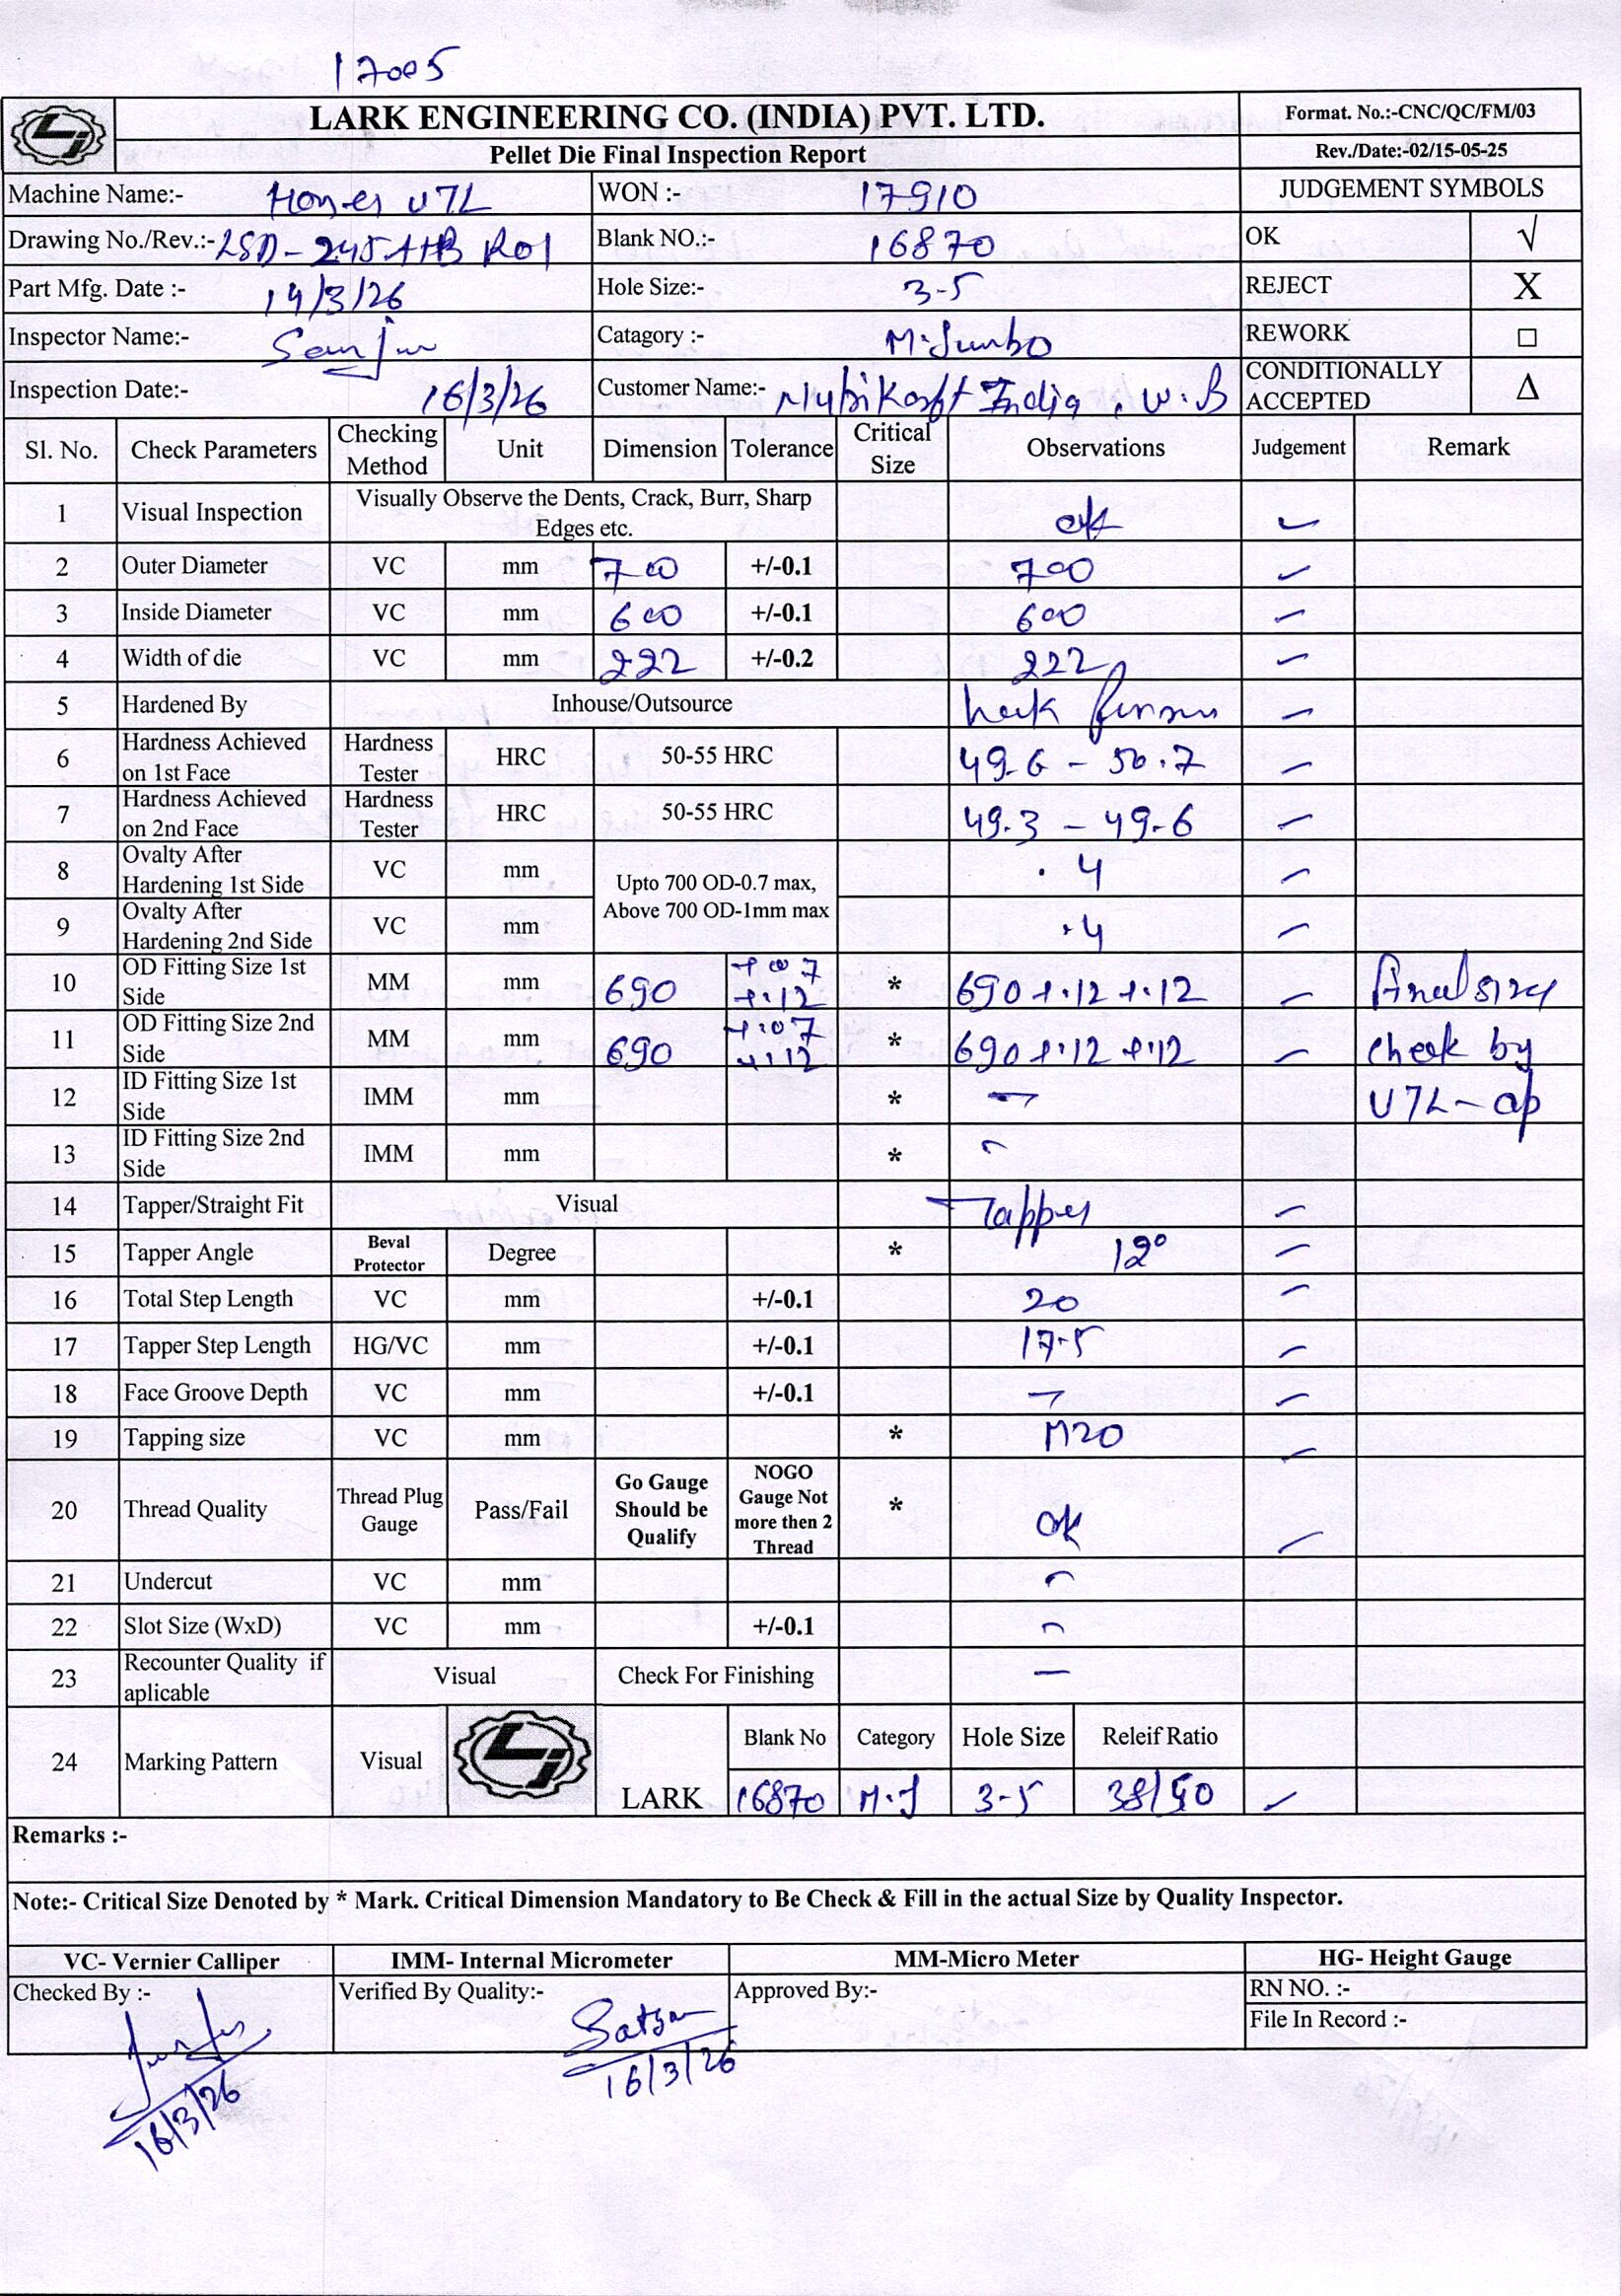 17005
LARK ENGINEERING CO. (INDIA) PVT. LTD.
Pellet Die Final Inspection Report
Format. No.:-CNC/QC/FM/03
Rev./Date:-02/15-05-25
Machine Name:- U7L WON :- 17910 JUDGEMENT SYMBOLS
Drawing No./Rev.:- LSD-245 R01 Blank NO.:- 16870 OK √
Part Mfg. Date :- 14/3/26 Hole Size:- 3-5 REJECT X
Inspector Name:- Sanju Catagory :- M.Jumbo REWORK □
Inspection Date:- 16/3/26 Customer Name:- India, W.B CONDITIONALLY ACCEPTED Δ
Sl. No. Check Parameters Checking Method Unit Dimension Tolerance Critical Size Observations Judgement Remark
1 Visual Inspection Visually Observe the Dents, Crack, Burr, Sharp Edges etc. ok ✓
2 Outer Diameter VC mm 700 +/-0.1 700 ✓
3 Inside Diameter VC mm 600 +/-0.1 600 ✓
4 Width of die VC mm 222 +/-0.2 222 ✓
5 Hardened By Inhouse/Outsource ✓
6 Hardness Achieved on 1st Face Hardness Tester HRC 50-55 HRC 49.6 - 50.7 ✓
7 Hardness Achieved on 2nd Face Hardness Tester HRC 50-55 HRC 49.3 - 49.6 ✓
8 Ovalty After Hardening 1st Side VC mm Upto 700 OD-0.7 max, Above 700 OD-1mm max .4 ✓
9 Ovalty After Hardening 2nd Side VC mm .4 ✓
10 OD Fitting Size 1st Side MM mm 690 +.07 +.12 * 690 +.12 +.12 ✓ final size
11 OD Fitting Size 2nd Side MM mm 690 +.07 +.12 * 690 +.12 +.12 ✓ check by
12 ID Fitting Size 1st Side IMM mm * - U7L-op
13 ID Fitting Size 2nd Side IMM mm * -
14 Tapper/Straight Fit Visual Tapper ✓
15 Tapper Angle Beval Protector Degree * 12° ✓
16 Total Step Length VC mm +/-0.1 20 ✓
17 Tapper Step Length HG/VC mm +/-0.1 17.5 ✓
18 Face Groove Depth VC mm +/-0.1 - ✓
19 Tapping size VC mm * M20 ✓
20 Thread Quality Thread Plug Gauge Pass/Fail Go Gauge Should be Qualify NOGO Gauge Not more then 2 Thread * ok ✓
21 Undercut VC mm -
22 Slot Size (WxD) VC mm +/-0.1 -
23 Recounter Quality if aplicable Visual Check For Finishing -
24 Marking Pattern Visual LARK Blank No Category Hole Size Releif Ratio
16870 M.J 3-5 38/50 ✓
Remarks :-
Note:- Critical Size Denoted by * Mark. Critical Dimension Mandatory to Be Check & Fill in the actual Size by Quality Inspector.
VC- Vernier Calliper IMM- Internal Micrometer MM-Micro Meter HG- Height Gauge
Checked By :- Verified By Quality:- Approved By:- RN NO. :-
File In Record :-
16/3/26 16/3/26